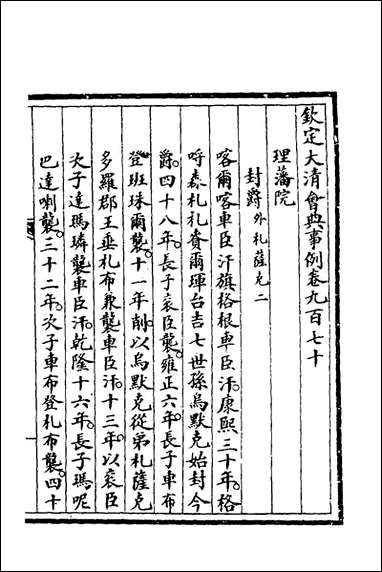 欽定大清會典事例卷九百七十
理藩院
封爵外札薩克二
喀爾喀車臣汗旗格根車臣汗康熙三十年格
呼森札札賚爾琿台吉七世孫烏默克始封今
爵。四十八年。長子袞臣襲。雍正六年。長子車布
登班珠爾襲。十一年。削。以烏默克從弟札薩克
多羅郡王垂札布兼襲車臣汗。十三年。以袞臣
次子達瑪璘襲車臣汗。乾隆十六年。長子瑪呢
巴達喇襲。三十二年。次子車布登札布襲。四十